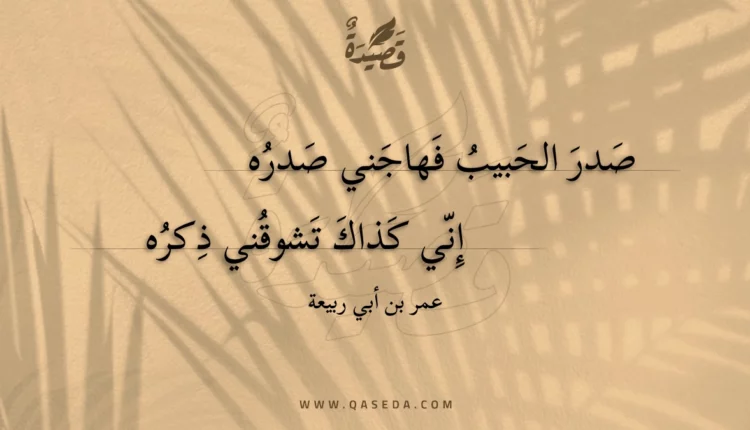 قَصِيدَةٌ
صَدرَ الحَبيبُ فَهاجَني صَدرُه
إِنّي كَذاكَ تَشوقُني ذِكرُه
عمر بن أبي ربيعة
WWW.QASEDA.COM